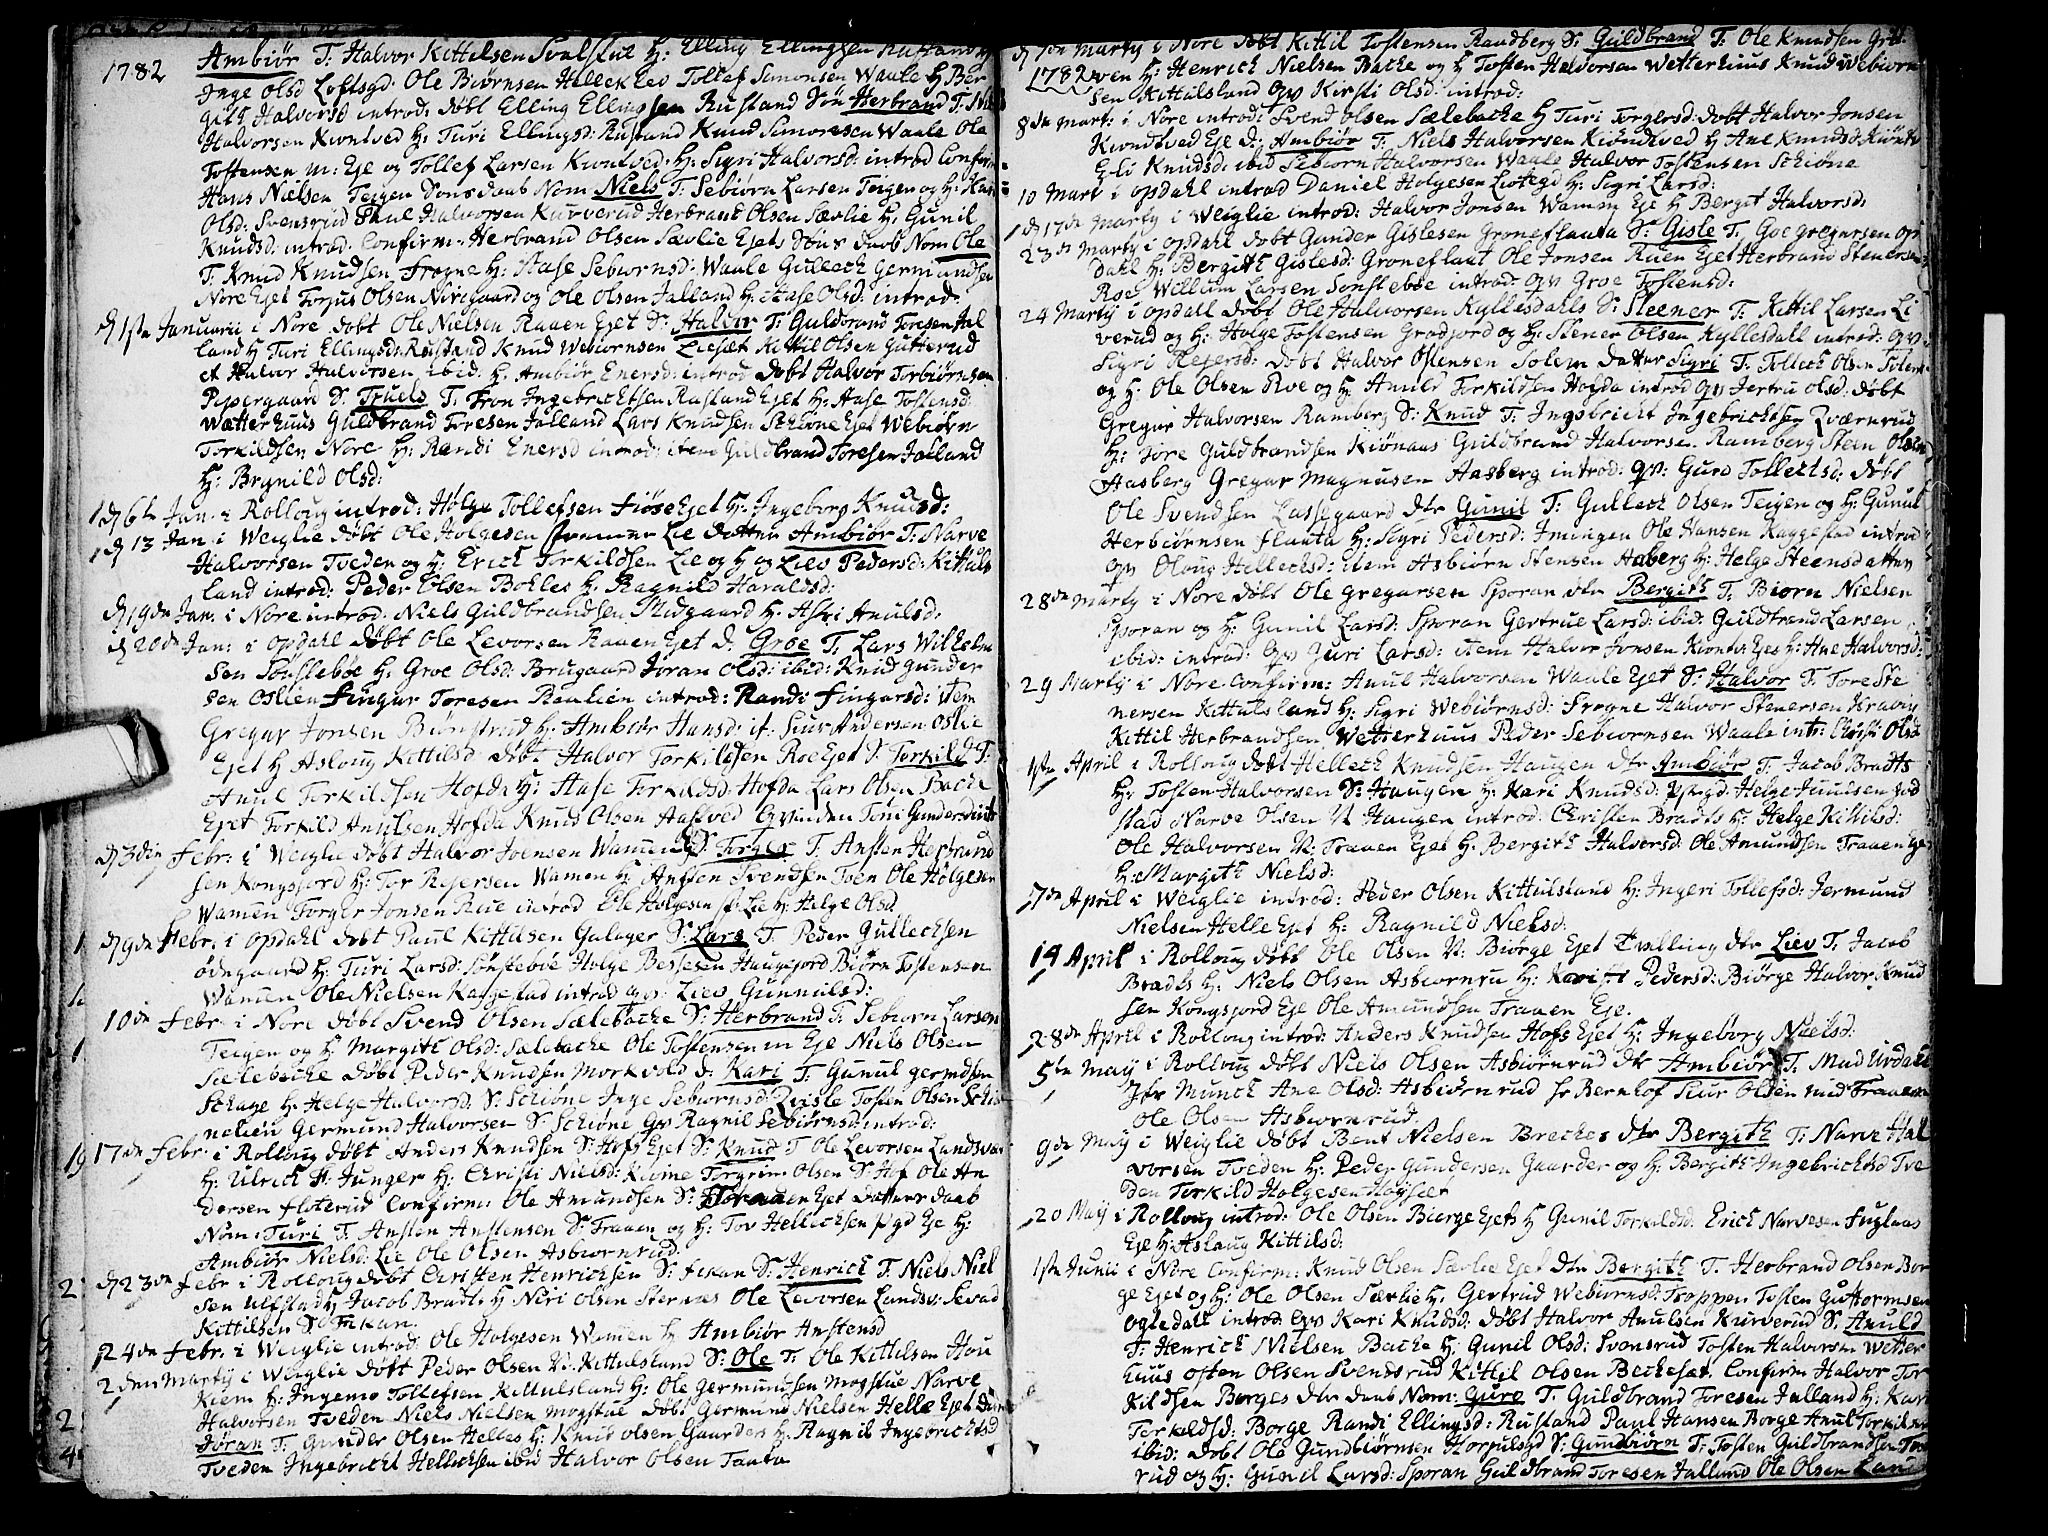 1782
Ambiør T: Halvor Kittelsen Svalstue H: Elling Ellingsen Rustand
Inge Olsd Loftsgd: Ole Biørnsen Hellekled Tollef Simonsen Waale H Ber
gith Halvorsd introd: døbt Elling Ellingsen Rustand Søn Herbrand T: Niels
Halvorsen Kiontved H: Turi Ellingsd: Rustand Knud Simonsen Waale Ole
Tostensen m: Eje og Tollef Larsen Kiontved H: Sigri Halvorsd: introd Confirm
Hans Nielsen Teigen Søns daab Nom Niels T: Sebiørn Larsen Teigen og H: Kari
Olsd: Svensrud Halvorsen Kurverud Herbrand Olsen Sævlie H: Gunil
Knudsd: introd: Confirm: Herbrand Olsen Sævlie Ejets Søns daab Nom Ole
T: Knud Knudsen Frogne H: Aase Sebiørnsd: Waale Gulleck Germundsen
Nore Ejet Torjus Olsen Nirigaard og Ole Olsen Jalland H: Aase Olsd: introd:
D 1ste Januarii i Nore døbt Ole Nielsen Raaen Ejet S: Halvor T: Guldbrand Toresen Jal
land H Turi Ellingsd: Rustand Knud Webiørnsen Liesæt Kittil Olsen Gutterud
et Halvor Halvorsen ibid: H: Ambiør Enersd: introd døbt Halvor Torbiørnsen
Pepergaard S: Truels T: Tron Ingebrechtsen Rustand Ejet H: Aase Tostensd:
Wætterhuus Guldbrand Toresen Jalland Lars Knudsen Schiøne Ejet Webiørn
Torkildsen Nore H: Randi Enersd introd: item Guldbrand Toresen Jalland
H: Brynild Olsd:
D 6te Jan: i Rolloug introd: Helge Tollefsen Fiøse Ejet H: Ingeborg Knudsd:
D 13 Jan: i Weiglie døbt Ole Holgesen Lie datter Ambiør T: Narve
Halvorsen Tveden og H: Erick Torkildsen Lie og H og Liev Pedersd: Kittuls
land introd: Peder Olsen Bokles H: Ragnild Haraldsd:
D 19de Jan: i Nore introd: Niels Guldbrandsen Midgaard H: Astri Anulsd:
D 20de Jan: i Opdahl døbt Ole Levorsen Raaen Ejet D: Groe T: Lars Wilhelm
sen Sønstebøe H: Groe Olsd: Brugaard Joran Olsd: ibid: Knud Gunder
sen Oslien Fingar Toresen Raulien introd: Randi Fingarsd: item
Gregar Jonsen Biørnstrud H: Ambiør Hansd: it: Siur Andersen Oslie
Ejet H Aslaug Kittilsd: døbt Halvor Torkildsen Roe Ejet S: Torkild T:
Anul Torkildsen Hofda H: Aase Torkildsd: Hofda Lars Olsen Bache
Ejet Torkild Anulsen Hofda Knud Olsen Aasved Eyvinden Toni Gundersd: intr
D 3die Febr: i Weiglie døbt Halvor Joensen Wamen S: Torger T: Ansten Herbrand
sen Kongsjord H: Tor Rejersen Wamen H Ansten Svendsen Toen Ole Holgesen
Wamen Torger Jonsen Rue introd Ole Holgesen Lie H: Helge Olsd
D 9de Febr: i Opdahl døbt Paul Kittilsen Galager S: Lars T: Peder Gullechsen
Ødegaard H: Turi Larsd: Sønstebøe Holge Bessesen Haugejord Biørn Tostensen
Wamen Ole Nielsen Kaggestad introd qv: Liev Gunnulsd:
10de Febr: i Nore døbt Svend Olsen Sælebacke S: Herbrand T: Sebiørn Larsen
Teigen og H: Margith Olsd: Sælebacke Ole Tostensen m Eje Niels Olsen
Sælebacke døbt Peder Knudsen Morkvold d: Kari T: Gunul germdsen
Schage H: Helge Halvorsd: S: Schiøne Inge Sebiørnsd: Qvisle Tosten Olsen Schio
nelien Germund Halvorsen S: Schiøne Qv Ragnil Sebiørnsd: introd:
17de Febr: i Rolloug døbt Anders Knudsen S: Hofs Ejet S: Knud T: Ole Levorsen Landsver
H: Ulrich F: Junger H: Christi Nielsd: Kieme Torgrim Olsen S: Hof Ole An
dersen Floterud Confirm: Ole Amundsen S: Traaen Ejet datters daab
Nom: Turi T: Ansten Anstensen S: Traaen og H: Tov Hellechsen pgd Eje H:
Ambiør Nielsd: Lie Ole Olsen Asbiørnrud:
D 23de Febr i Rolloug døbt Christen Henrichsen S: Fekan S: Henrich T: Niels Niel
sen Ulfstad H: Jacob Bradt H Niri Olsen Sternæs Ole Levorsen Landsv: Sevad
Kittilsen S: Fekan.
24de Febr: i Weiglie introd: Ole Holgesen Wamen H Ambiør Anstensd
2den Marty i Weiglie døbt Peder Olsen N: Kittulsland S: Ole T: Ole Kittelsen Hou
Kiem H: Ingemo Tollefsen Kittulsland H: Ole Germundsen Mogstue Narve
Halvorsen Tveden Niels Nielsen Mogstue døbt Germund Nielsen Helle Ejet datr
Jøran T: Gunder Olsen Helles H: Knud Olsen Gaarder H: Ragnil Ingebrichtsd
Tveden Ingebricht Hellichsen ibid Halvor Olsen Taata
1782
D 1ste Marty i Nore døbt Kittil Tostensen Randberg S: Guldbrand T: Ole Knudsen Grøt
ven H: Henrich Nielsen Bache og H Tosten Halvorsen Wetterhuus Knud Webiørn
sen Kittulsland qv Kirsti Olsd: introd:
8de Mart: i Nore introd: Svend Olsen Sælebache H Turi Torgersd: døbt Halvor Jonsen
Kiondtved Eje d: Ambiør T: Niels Halvorsen Kiondtved H Ane Knudsd: Kiontv
Eli Knudsd: ibid Sebiørn Halvorsen Waale Halvor Tostensen Schiøne
10 Mart i Opdahl introd Daniel Holgesen Liotegd H: Sigri Larsd:
D 17de Marty i Weiglie introd: Halvor Jonsen Wamen Eje H Berget Halvorsd:
23de Marty i Opdahl døbt Gunder Gislesen Groneflaata S: Gisle T: Goe gregarsen Op
dahl H: Bergith Gislesd: Groneflaat Ole Jonsen Ruen Ejet Herbrand Stenersen
Roe Wellum Larsen Sønstebøe introd: qv Groe Tostensd:
24 Marty i Opdahl døbt Ole Halvorsen Kyllesdahls S: Steener T: Kittil Larsen Li
verud og H: Holge Tostensen Grodjord og H: Stener Olsen Kyllesdall introd: qv
Sigri Rejersd: døbt Halvor Ostensen Solem datter Sigri T: Tollech Olsen Solem
og H: Ole Olsen Roe og H: Anild Torkildsen Hofda introd qv Jertru Olsd: døbt
Gregar Halvorsen Ramberg S: Knud T: Ingebricht Ingebrichtsen Qværnrud
H: Tore Guldbrandsen Kiønaas Guldbrand Halvorsen Ramberg Steen Olsen
Aasberg Gregar Magnusen Aasberg introd: qv: Guro Tollechsd: døbt
Ole Svendsen Lassegaard dtr Gunil T: Gullech Olsen Teigen og H: Gunul
Herbiørnsen Flaata H: Sigri Pedersd: Imingen Ole Hansen Kaggestad introd
qv Oloug Hellechsd: item Asbiørn Stensen Aaberg H: Helga Steensdatter
28de Marty i Nore døbt Ole gregarsen Sporan dtr Bergith T: Biørn Nielsen
Sporan og H: Gunil Larsd: Sporan Gertrue Larsd: ibid: Guldbrand Larsen
ibid: introd: qv Juri Larsd: item Halvor Jonsen Kiontv: Ejes H: Ane Halvorsd:
29 Marty i Nore Confirm: Anul Halvorsen Waale Ejet S: Halvor T: Tore Ste
nersen Kittulsland H: Sigri Webiørnsd: Frogne Halvor Stenersen Kravig
Kittil Herbrandsen Wetterhuus Peder Sebiørnsen Waale intr: Chirsti Olsd
1ste April i Rolloug døbt Hellech Knudsen Haugen dtr Ambiør T: Jacob Bradts
H: Tosten Halvorsen S: Haugen H: Kari Knudsd: Pgd: Helge Juulsen Wd
stad Narve Olsen N Haugen introd: Christen Bradts H: Helge Kittilsd:
Ole Halvorsen N: Traaen Ejet H: Bergith Halvorsd: Ole Amundsen Traaen Eje
H: Margith Nielsd:
7de April i Weiglie introd: Peder Olsen Kittulsland H: Ingeri Tollefsd: Jermund
Nielsen Helle Ejet H: Ragnild Nielsd:
14 April i Rolloug døbt Ole Olsen N: Biørge Ejet Tvilling dtr Liev T: Jacob
Bradts H: Niels Olsen Asbiørnru H: Kari Pedersd: Biørge Halvor Knud
sen Kongsjord Eje Ole Amundsen Traaen Eje.
28de April i Rolloug introd: Anders Knudsen Hofs Ejet H: Ingeborg Nielsd:
5te May i Rolloug døbt Niels Olsen Asbiørnrud dtr Ambiør T: Mad Urdahl
Jfr Munch Ane Olsd: Asbiørnrud Hr Bernhof Siur Olsen rud Traaen
Ole Olsen Asbiørnrud
9de May i Weiglie døbt Bent Nielsen Breches dtr Bergith T: Narve Hal
vorsen Tveden H: Peder Gundersen Gaarder og H: Bergith Ingebrichtsd Tve
den Torkild Holgesen Høysæt
20 May i Rolloug introd: Ole Olsen Bierge Ejets H Gunil Torkildsd: Erick Narvesen Fuglaas
Eje H: Aslaug Kittilsd:
1ste Junii i Nore Confirm: Knud Olsen Sævlie Ejet dtr Bergith T: Herbrand Olsen Bor
ge Ejet og H: Ole Olsen Sævlie H: Gertrud Webiørnsd: Troppen Tosten Guttormsen
Ogledahl introd: qv Kari Knudsd: døbt Halvor Anulsen Kurverud S: Anuld
T: Henrich Nielsen Bache H: Gunil Olsd: Svensrud Tosten Halvorsen Wetter
huus Osten Olsen Svendsrud Kittil Olsen Beckeset Confirm Halvor Tor
kildsen Borges dtr daab Nom: Guro T: Guldbrand Toresen Jalland H: Kari
Torkildsd: Borge Randi Ellingsd: Rustand Paul Hansen Borge Anul Torkildsen
ibid: døbt Ole Gundbiørnsen Horpulsgd S: Gundbiørn T: Tosten Guldbrandsen
rud og H: Gunil Larsd: Sporan Guldbrand Toresen Jalland Ole Olsen